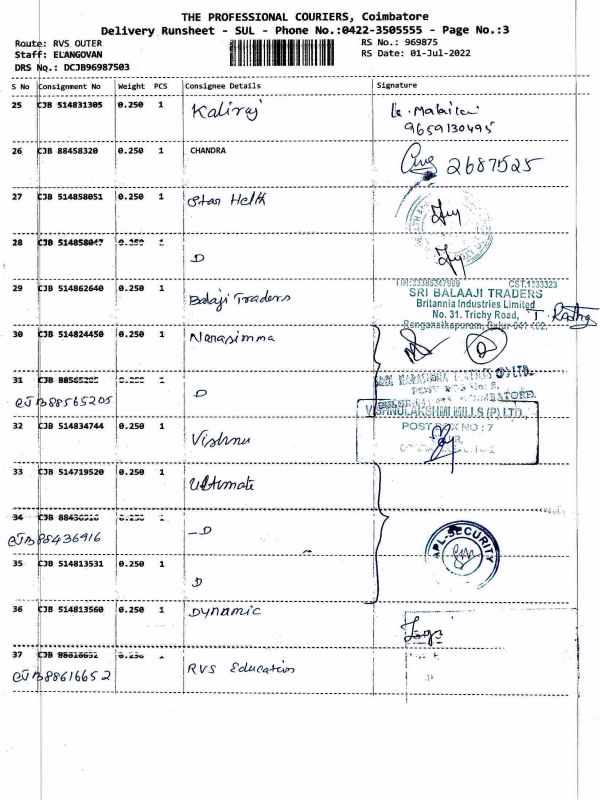 THE PROFESSIONAL COURIERS, Coimbatore
Delivery Runsheet - SUL - Phone No.:0422-3505555 - Page No.:3
Route: RVS OUTER
RS No.: 969875
Staff: ELANGOVAN
RS Date: 01-Jul-2022
DRS No.: DCJB96987503
S No Consignment No Weight PCS Consignee Details Signature
25 CJB 514831305 0.250 1 Kaliraj
9659130495
26 CJB 88458320 0.250 1 CHANDRA 2687525
27 CJB 514858051 0.250 1 Star Helth
28 CJB 514858047 0.350 1 D
29 CJB 514862640 0.250 1 Balaji Traders
CST.1333323
SRI BALAAJI TRADERS
Britannia Industries Limited
No. 31. Trichy Road,
30 CJB 514824450 0.250 1 Narasimma
31 CJB 88565205 1 D
CJB88565205
32 CJB 514834744 0.250 1 Vishnu
VISHNULAKSHMI MILLS (P) LTD.,
POST BOX NO : 7
33 CJB 514719520 0.250 1 Ultimate
34 CJB 1 D
CJB88436916
APL-SECURITY
35 CJB 514813531 0.250 1 D
36 CJB 514813560 0.250 1 Dynamic
37 CJB 1 RVS Education
CJB88616652